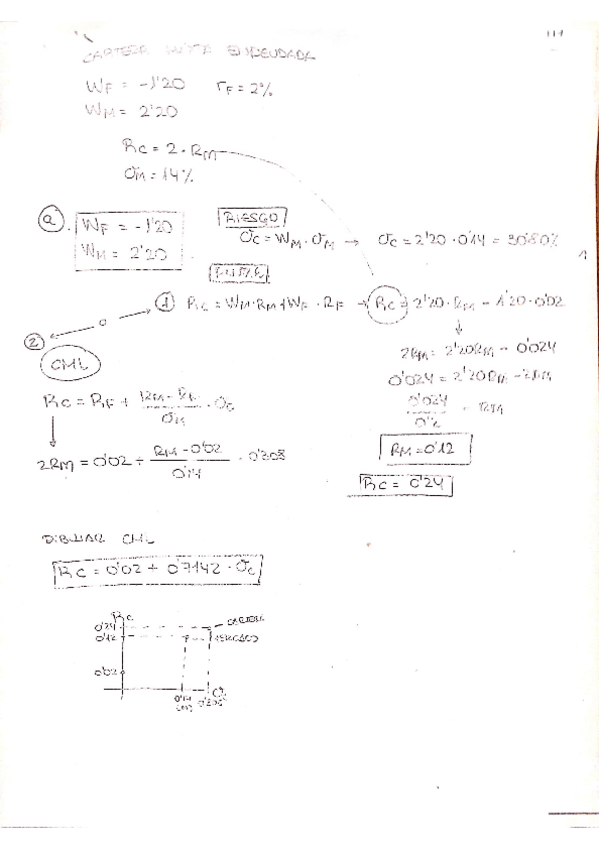 CARTERA MIXTA ENDEUDADA
WF = -1'20 rF = 2%
WM = 2'20
RC = 2 · RM
σM = 14%
a) WF = -1'20
WM = 2'20
RIESGO
σC = WM · σM → σC = 2'20 · 0'14 = 30'80%
① RC = WM·RM + WF · RF → RC = 2'20 · RM - 1'20 · 0'02
o
②
CML
2RM = 2'20RM - 0'024
0'024 = 2'20RM - 2RM
0'024 / 0'2 = RM
RM = 0'12
RC = 0'24
RC = RF + (RM - RF) / σM · σC
2RM = 0'02 + (RM - 0'02) / 0'14 · 0'308
DIBUJAR CML
RC = 0'02 + 0'7142 · σC
RC
0'24 CARTERA
0'12 MERCADO
0'02
0'14 0'308 σC
(M)